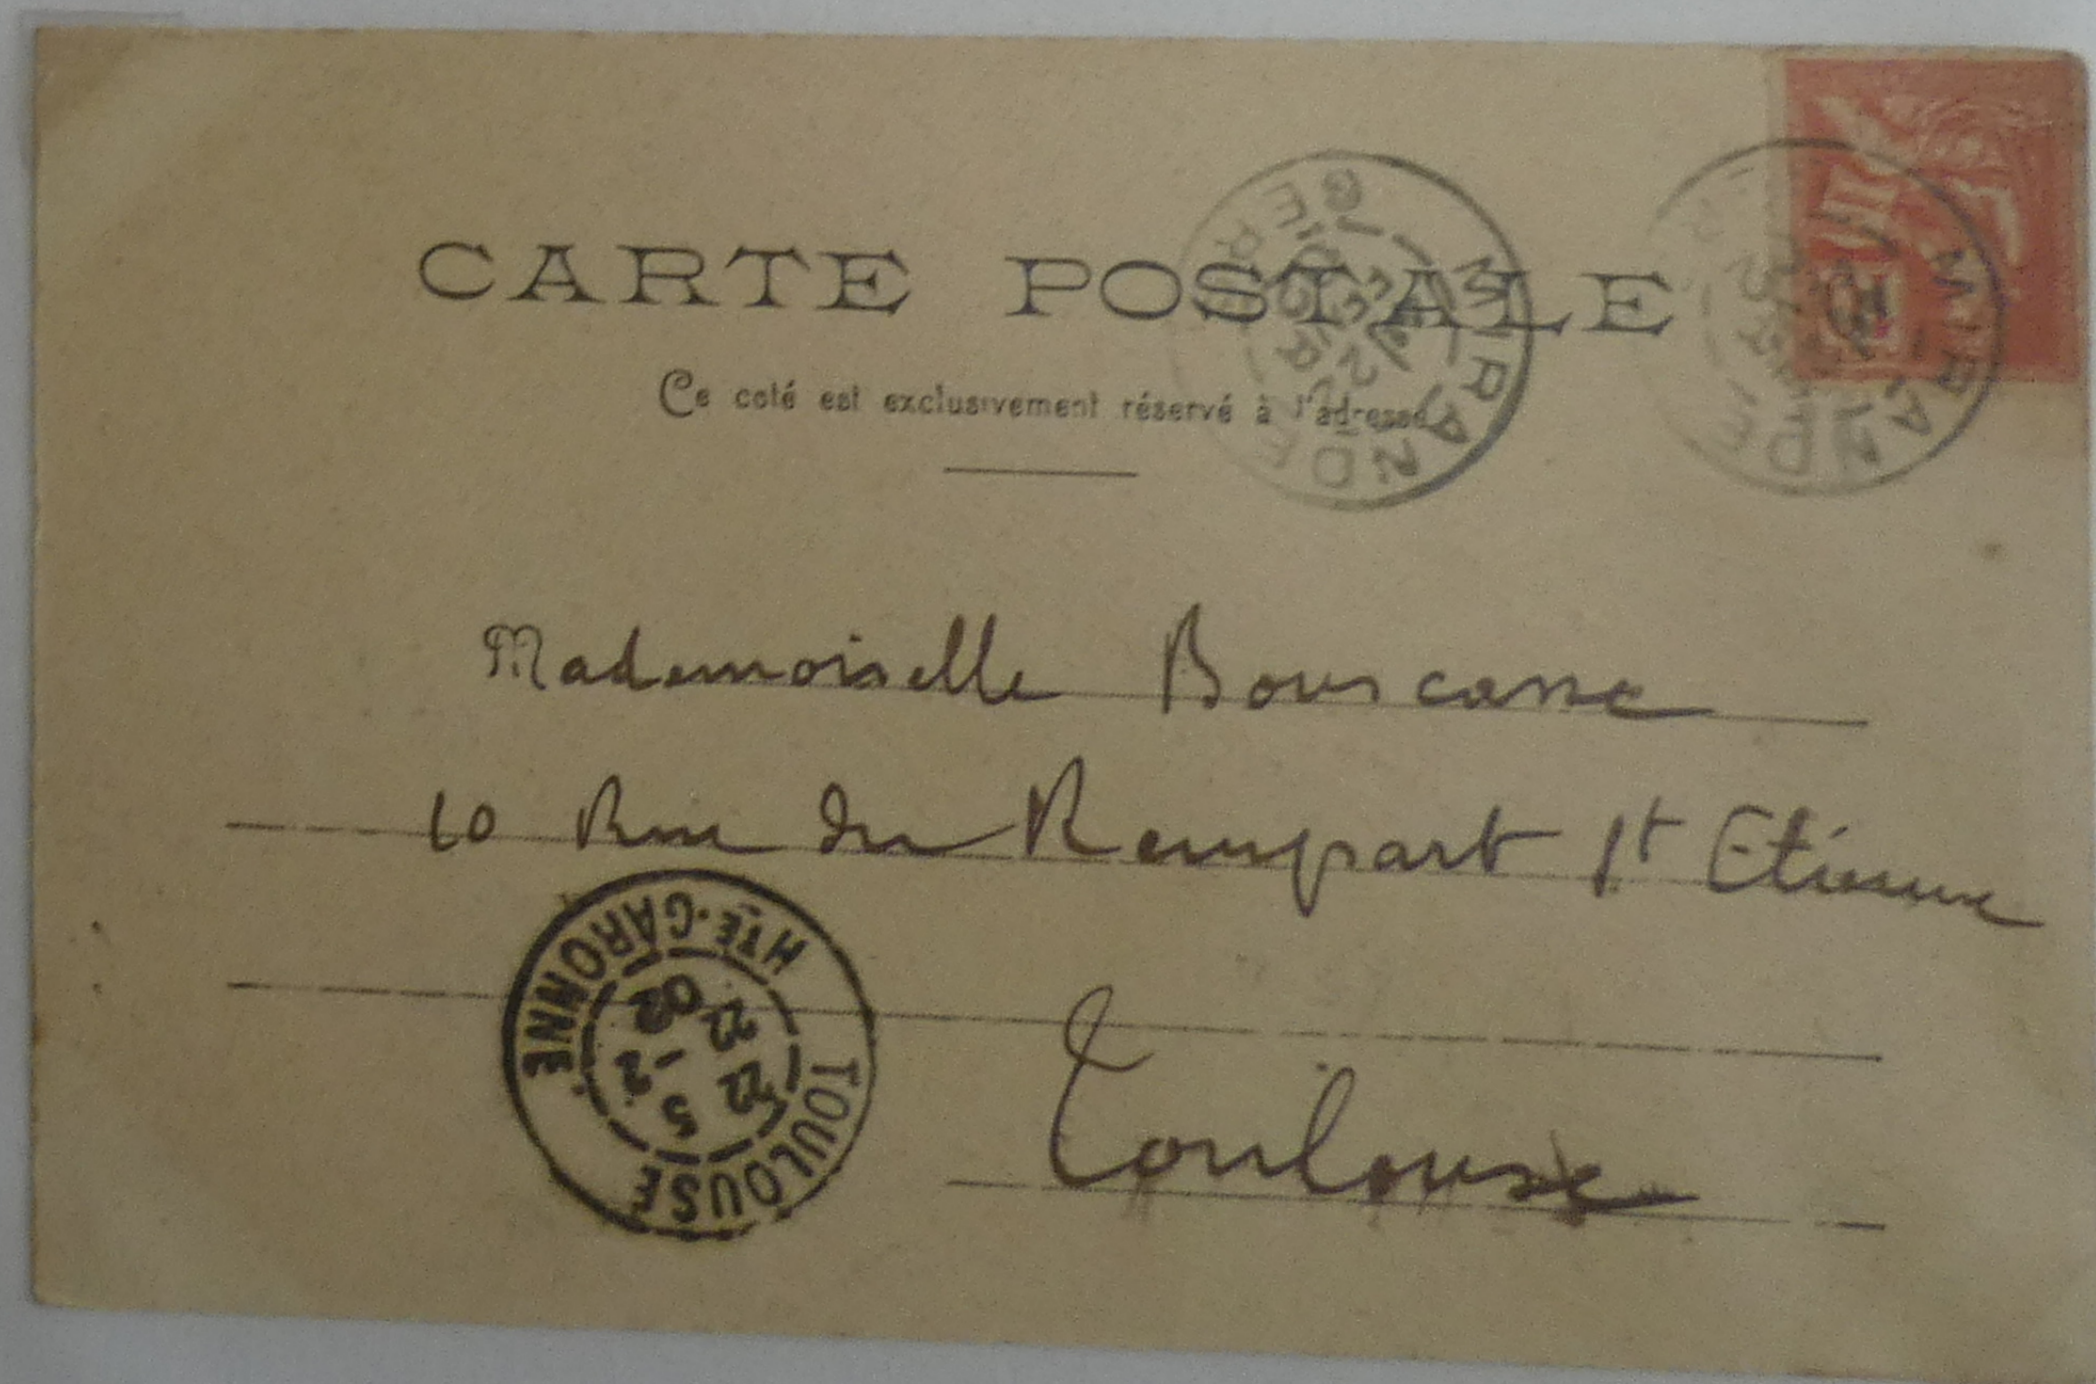 CARTE POSTALE
Ce coté est exclusivement réservé à l'adresse
MIRANDE
GERS
MIRANDE
Mademoiselle Bouscasse
10 Rue du Rempart St Etienne
Toulouse
TOULOUSE
HTE-GARONNE
22 5
-2
23 02